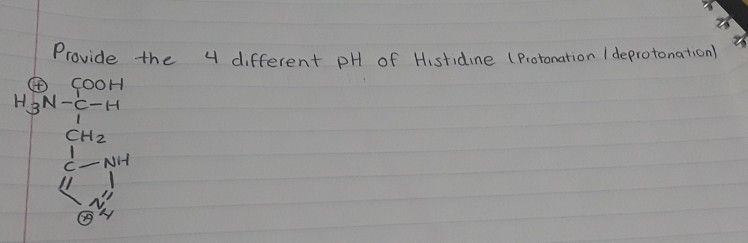 Provide the 4 different pH of Histidine (Protonation / deprotonation)
⊕ COOH
H3N-C-H
CH2
C-NH
N
⊕ H